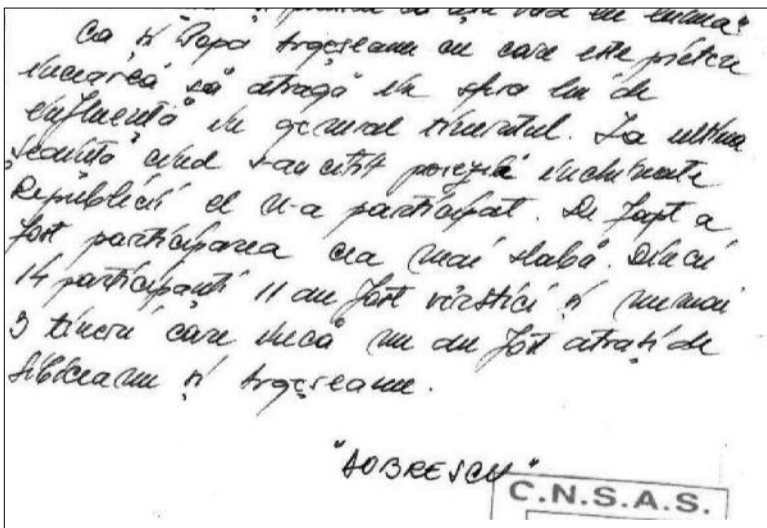 Ca și Popa Argeșeanu cu care este prieten
încearcă să atragă în sfera lui de
influență în general tineretul. La ultima
ședință cînd s-au citit poezii închinate
Republicii el n-a participat. De fapt a
fost participarea cea mai slabă. Din cei
14 participanți 11 au fost vîrstici și numai
3 tineri care încă nu au fost atrași de
Sibiceanu și Argeșeanu.
"DOBRESCU"
C.N.S.A.S.